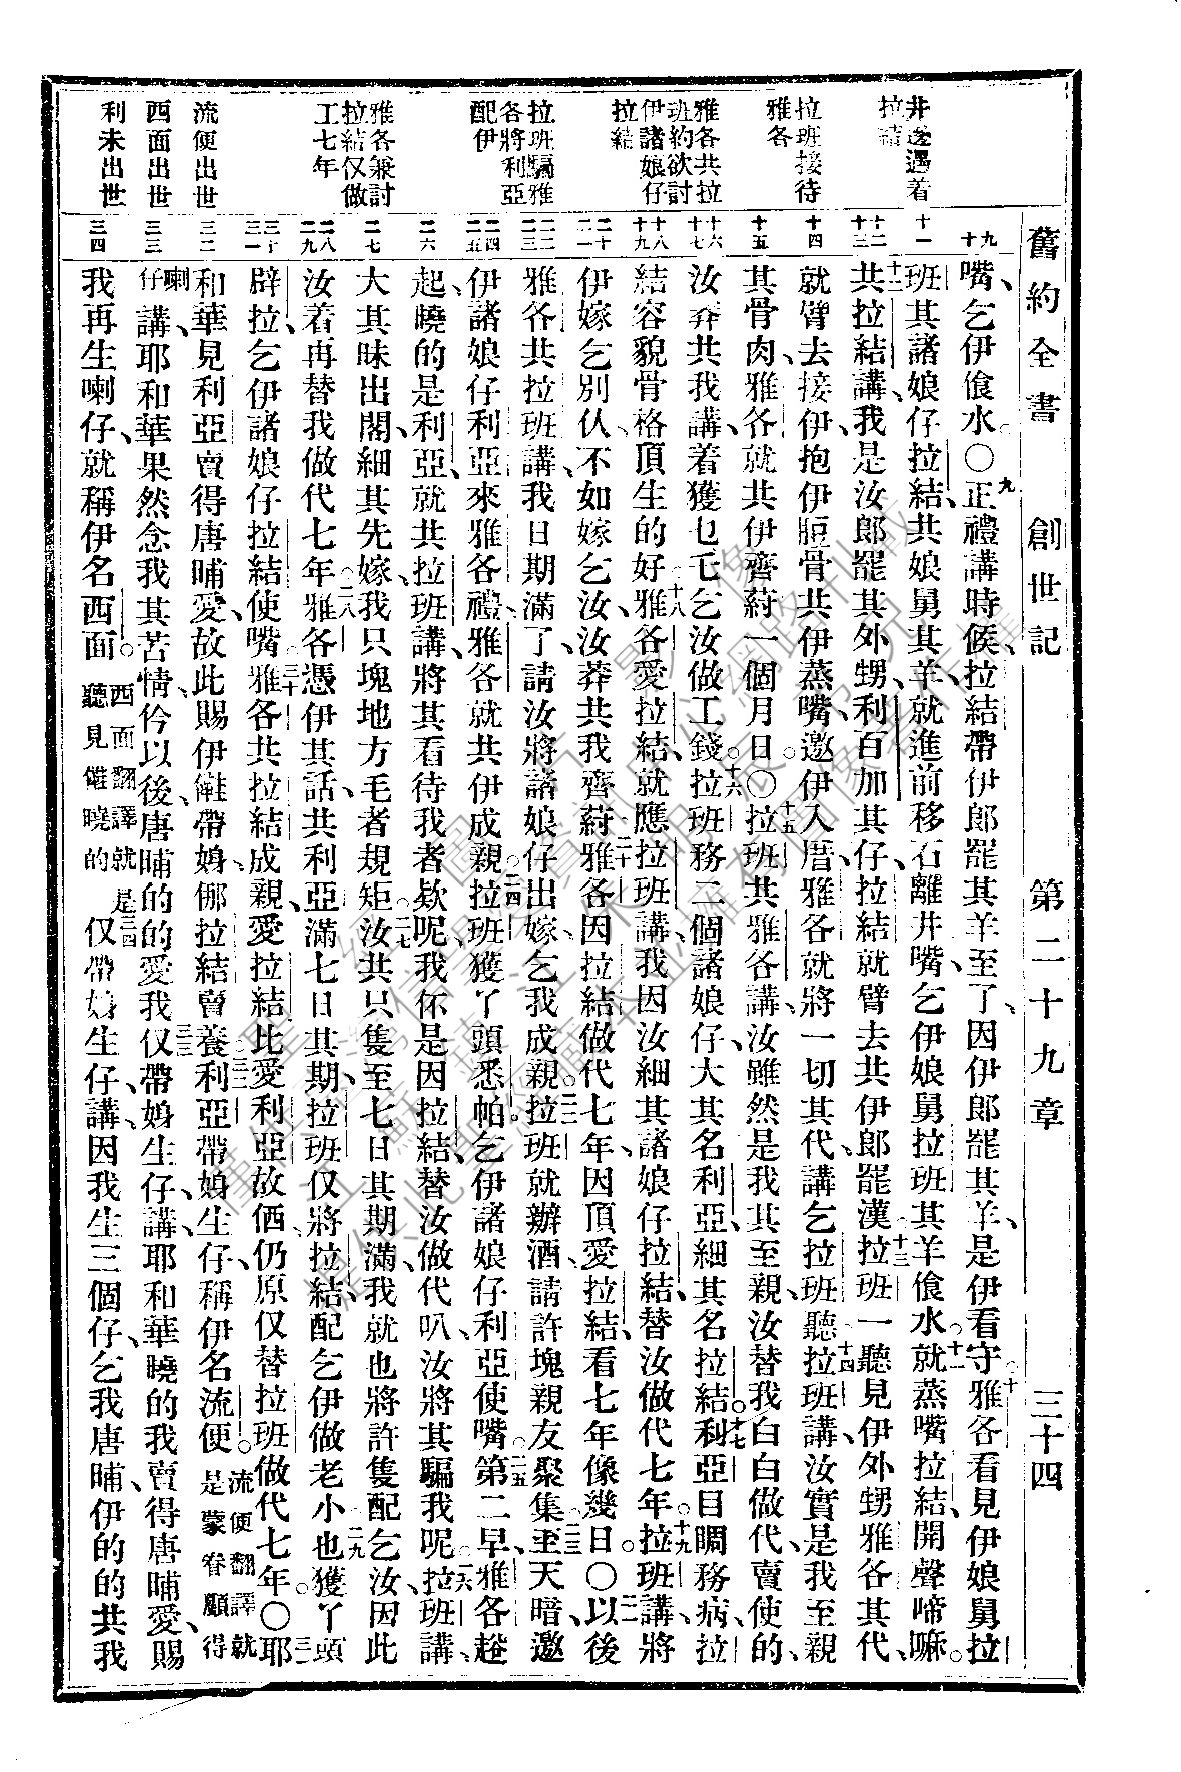 舊約全書　創世記　第二十九章　三十四
井邊遇着
拉結
拉班接待
雅各
雅各共拉
班約欲討
伊諸娘仔
拉結
拉班騙雅
各將利亞
配伊
雅各兼討
拉結仅做
工七年
流便出世
西面出世
利未出世
九
十
十一
十二
十三
十四
十五
十六
十七
十八
十九
二十
二一
二二
二三
二四
二五
二六
二七
二八
二九
三十
三一
三二
三三
三四
嘴、乞伊飲水。○九正禮講時候、拉結帶伊郎罷其羊至了、因伊郎罷其羊、是伊看守。十雅各看見伊娘舅拉
班其諸娘仔拉結、共娘舅其羊、就進前移石離井嘴、乞伊娘舅拉班其羊飲水。十一就蒸嘴拉結、開聲啼嘛。
十二共拉結講、我是汝郎罷其外甥、利百加其仔、拉結就臂去共伊郎罷漢。十三拉班一聽見伊外甥雅各其代、
就臂去接伊、抱伊脰骨、共伊蒸嘴、邀伊入厝、雅各就將一切其代講乞拉班聽。十四拉班講、汝實是我至親
其骨肉、雅各就共伊齊蒔一個月日。○十五拉班共雅各講、汝雖然是我其至親、汝替我白白做代賣使的、
汝莽共我講、着獲乜乇乞汝做工錢。十六拉班務二個諸娘仔、大其名利亞、細其名拉結。十七利亞目睭務病、拉
結容貌骨格頂生的好。十八雅各愛拉結、就應拉班講、我因汝細其諸娘仔拉結、替汝做代七年。十九拉班講、將
伊嫁乞別仈、不如嫁乞汝、汝莽共我齊蒔。二十雅各因拉結做代七年、因頂愛拉結、看七年像幾日。○二一以後
雅各共拉班講、我日期滿了、請汝將諸娘仔出嫁乞我成親。二二拉班就辦酒、請許塊親友聚集。二三至天暗、邀
伊諸娘仔利亞來雅各禮、雅各就共伊成親。二四拉班獲丫頭悉帕、乞伊諸娘仔利亞使嘴。二五第二早、雅各趖
起曉的是利亞、就共拉班講、將其看待我者欸呢、我伓是因拉結、替汝做代叭、汝將其騙我呢。二六拉班講、
大其昧出閣、細其先嫁、我只塊地方毛者規矩。二七汝共只隻至七日其期滿、我就也將許隻配乞汝、因此
汝着再替我做代七年。二八雅各憑伊其話、共利亞滿七日其期、拉班仅將拉結配乞伊做老小。二九也獲丫頭
辟拉、乞伊諸娘仔拉結使嘴。三十雅各共拉結成親、愛拉結比愛利亞故価、仍原仅替拉班做代七年。○三一耶
和華見利亞賣得唐晡愛、故此賜伊䧹帶㛪、倻拉結賣養。三二利亞帶㛪生仔、稱伊名流便。流便翻譯就是蒙眷顧得
喇仔講、耶和華果然念我其苦情、仱以後唐晡的的愛我。三三仅帶㛪生仔、講、耶和華曉的我賣得唐晡愛、賜
我再生喇仔、就稱伊名西面。西面翻譯就是聽見䧹曉的三四仅帶㛪生仔、講、因我生三個仔、乞我唐晡、伊的的共我